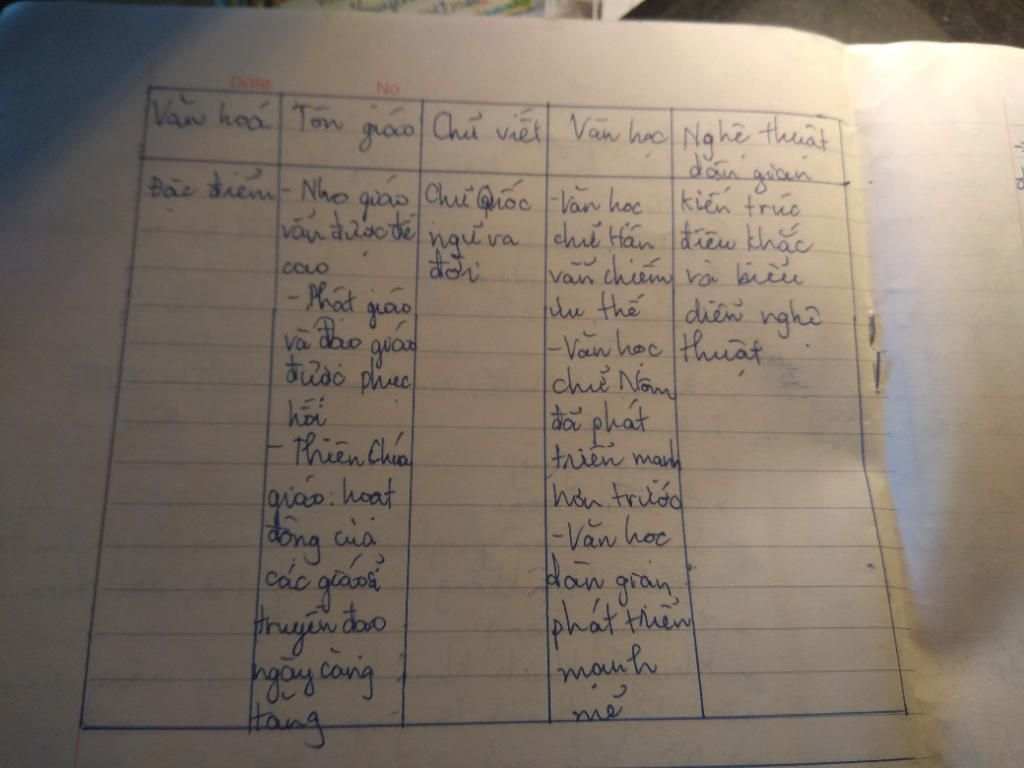 Date No
Văn hoá
Tôn giáo
Chữ viết
Văn học
Nghệ thuật
dân gian
Đặc điểm
- Nho giáo
vẫn được đề
cao
- Phật giáo
và Đạo giáo
được phục
hồi
- Thiên Chúa
giáo: hoạt
động của
các giáo sĩ
truyền đạo
ngày càng
tăng
Chữ Quốc
ngữ ra
đời
- Văn học
chữ Hán
vẫn chiếm
ưu thế
- Văn học
chữ Nôm
đã phát
triển mạnh
hơn trước
- Văn học
dân gian
phát triển
mạnh
mẽ
kiến trúc
điêu khắc
và biểu
diễn nghệ
thuật